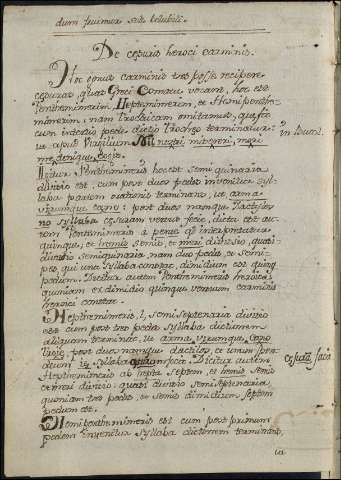 dum fruimur sed
De cesuris heroci carminis.
Hoc genus carminis tres posse recipere
cesuras, quas Greci Comata vocant, hoc est
Penthemimerim, Heptemimerim, et Hemipenthi-
mimerim: nam Trochaicam omitamus, que fit
cum in tertio pede dictio Trocheo terminatur
ut apud Virgilium
in Bucol.
Igitur Penthemimeris hoc est semi quinaria
divisio est, cum post duos pedes invenitur syl-
laba partem orationis terminans, ut arma
virumque cano: post duos namque Dactylos
no syllaba cesuram versus fecit, dicta est au-
tem Penthemimeris a pente q. interpretatur
quinque, et hemis semis, et meri divisio, quasi
divisio semiquinaria, nam duo pedes, et semi-
pes, qui una syllaba constat, dimidium est quinq.
pedum. Dicitur autem Penthemimeris heroici
quoniam ex dimidio quinque versuum carminis
heroici constat.
Heptemimeris, l. semi septenaria divisio
est cum post tres pedes syllaba dictionem
aliquam terminat, ut arma virumque cano
post duos namque dactilos, et unum spon-
deum syllaba cesuram fecit. Dicitur autem
cesurã facit
Heptemimeris ab hepta septem, et hemis semis
et meri divisio, quasi divisio semiseptenaria,
quoniam tres pedes, et semis dimidium septem
pedum est.
Hemipenthemimeris est cum post primum
pedem invenitur syllaba dictionem terminans,